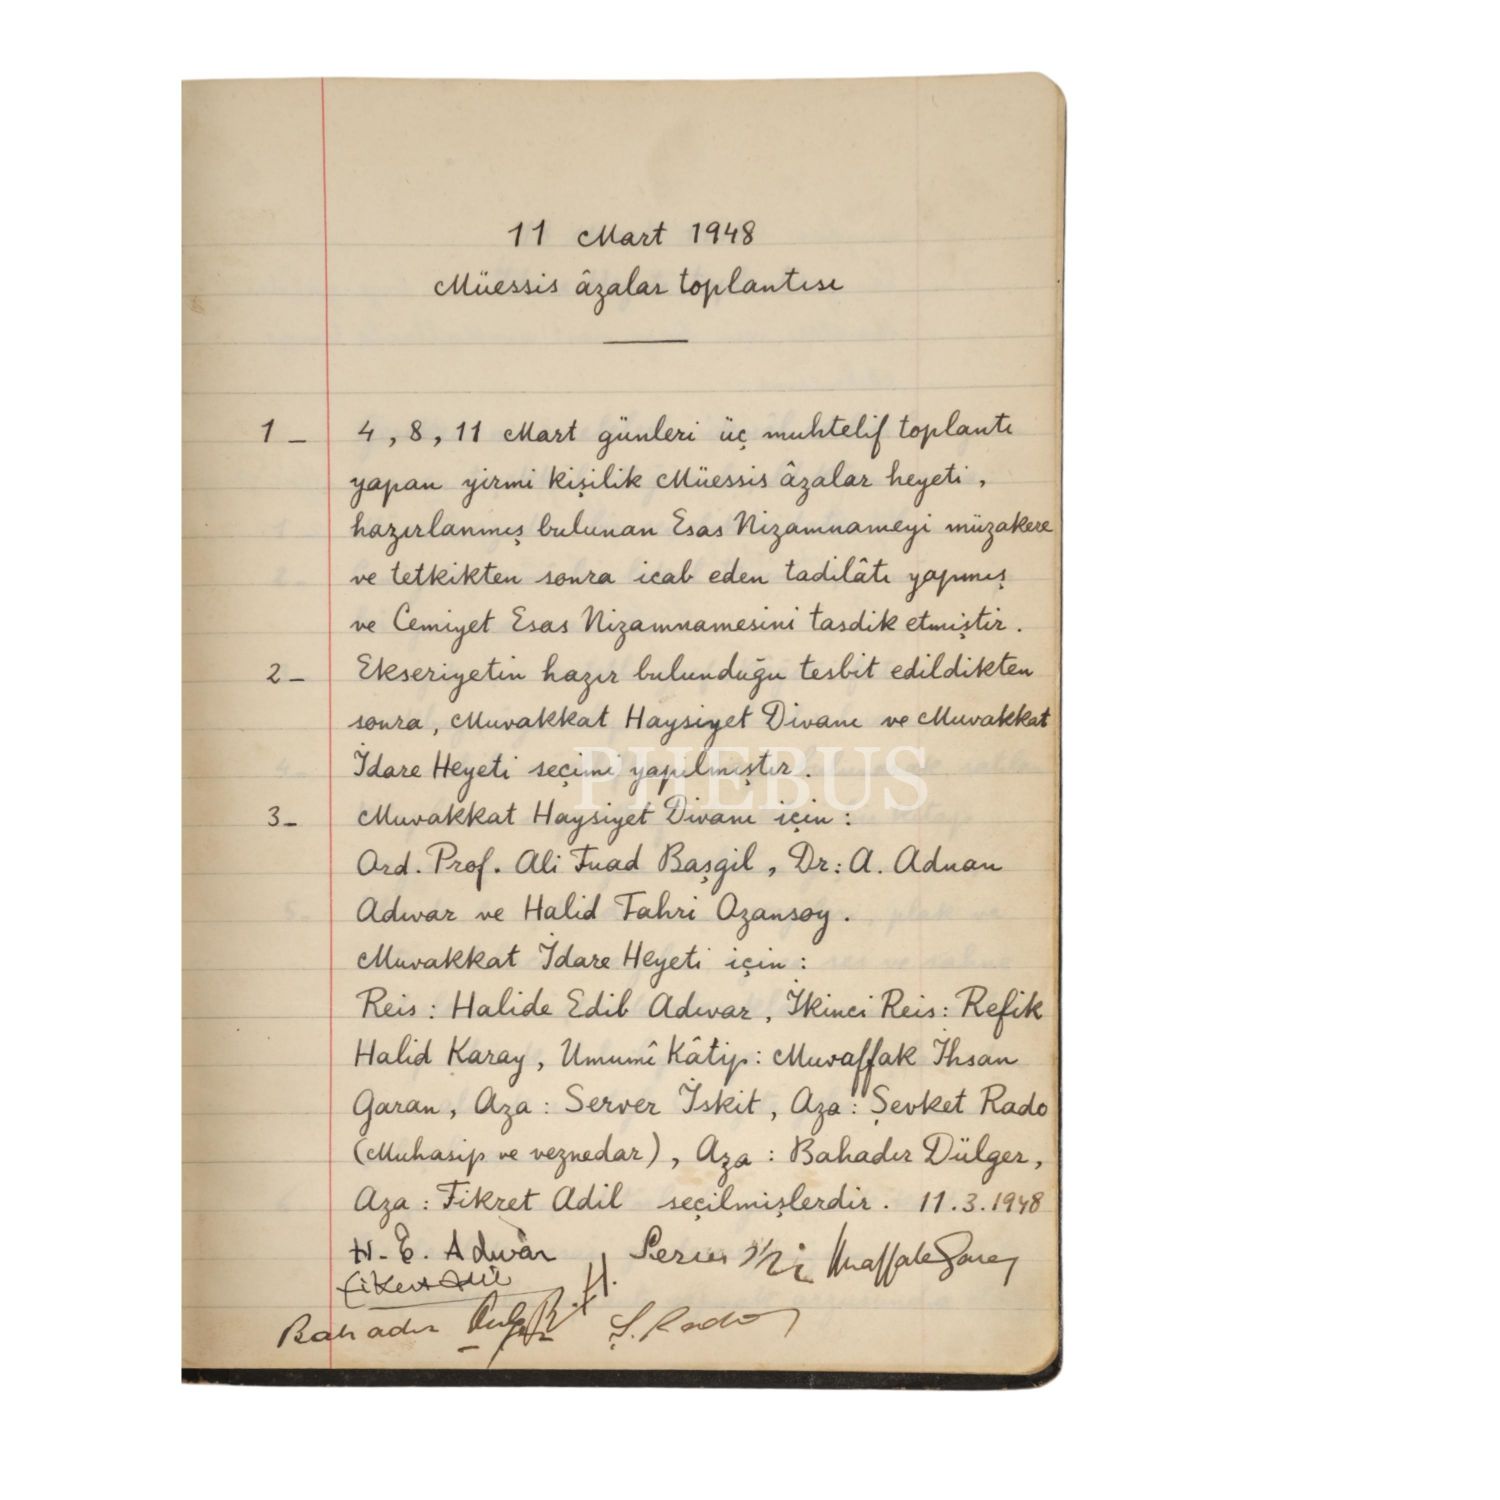 11 Mart 1948
Müessis âzalar toplantısı
1 _ 4, 8, 11 Mart günleri üç muhtelif toplantı
yapan yirmi kişilik Müessis âzalar heyeti,
hazırlanmış bulunan Esas Nizamnameyi müzakere
ve tetkikten sonra icab eden tadilâtı yapmış
ve Cemiyet Esas Nizamnamesini tasdik etmiştir.
2 _ Ekseriyetin hazır bulunduğu tesbit edildikten
sonra, Muvakkat Haysiyet Divanı ve Muvakkat
İdare Heyeti seçimi yapılmıştır.
PHEBUS
3 _ Muvakkat Haysiyet Divanı için:
Ord. Prof. Ali Fuad Başgil, Dr: A. Adnan
Adıvar ve Halid Fahri Ozansoy.
Muvakkat İdare Heyeti için:
Reis: Halide Edib Adıvar, İkinci Reis: Refik
Halid Karay, Umumî Kâtip: Muvaffak İhsan
Garan, Aza: Server İskit, Aza: Şevket Rado
(Muhasip ve veznedar), Aza: Bahadır Dülger,
Aza: Fikret Adil seçilmişlerdir. 11.3.1948
H. E. Adıvar
Fikret Adil
Bahadır Ş. Rado